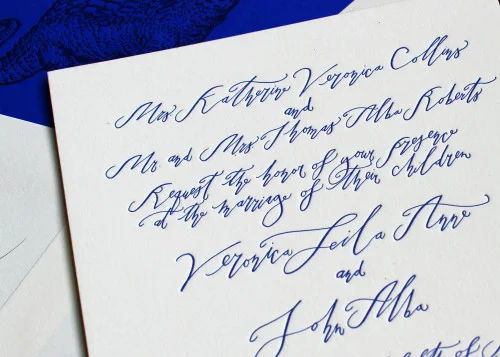 Mrs Katherine Veronica Collins
and
Mr. and Mrs Thomas Alba Roberts
Request the honor of your Presence
at the marriage of their children
Veronica Leila Anne
and
John Alba
of